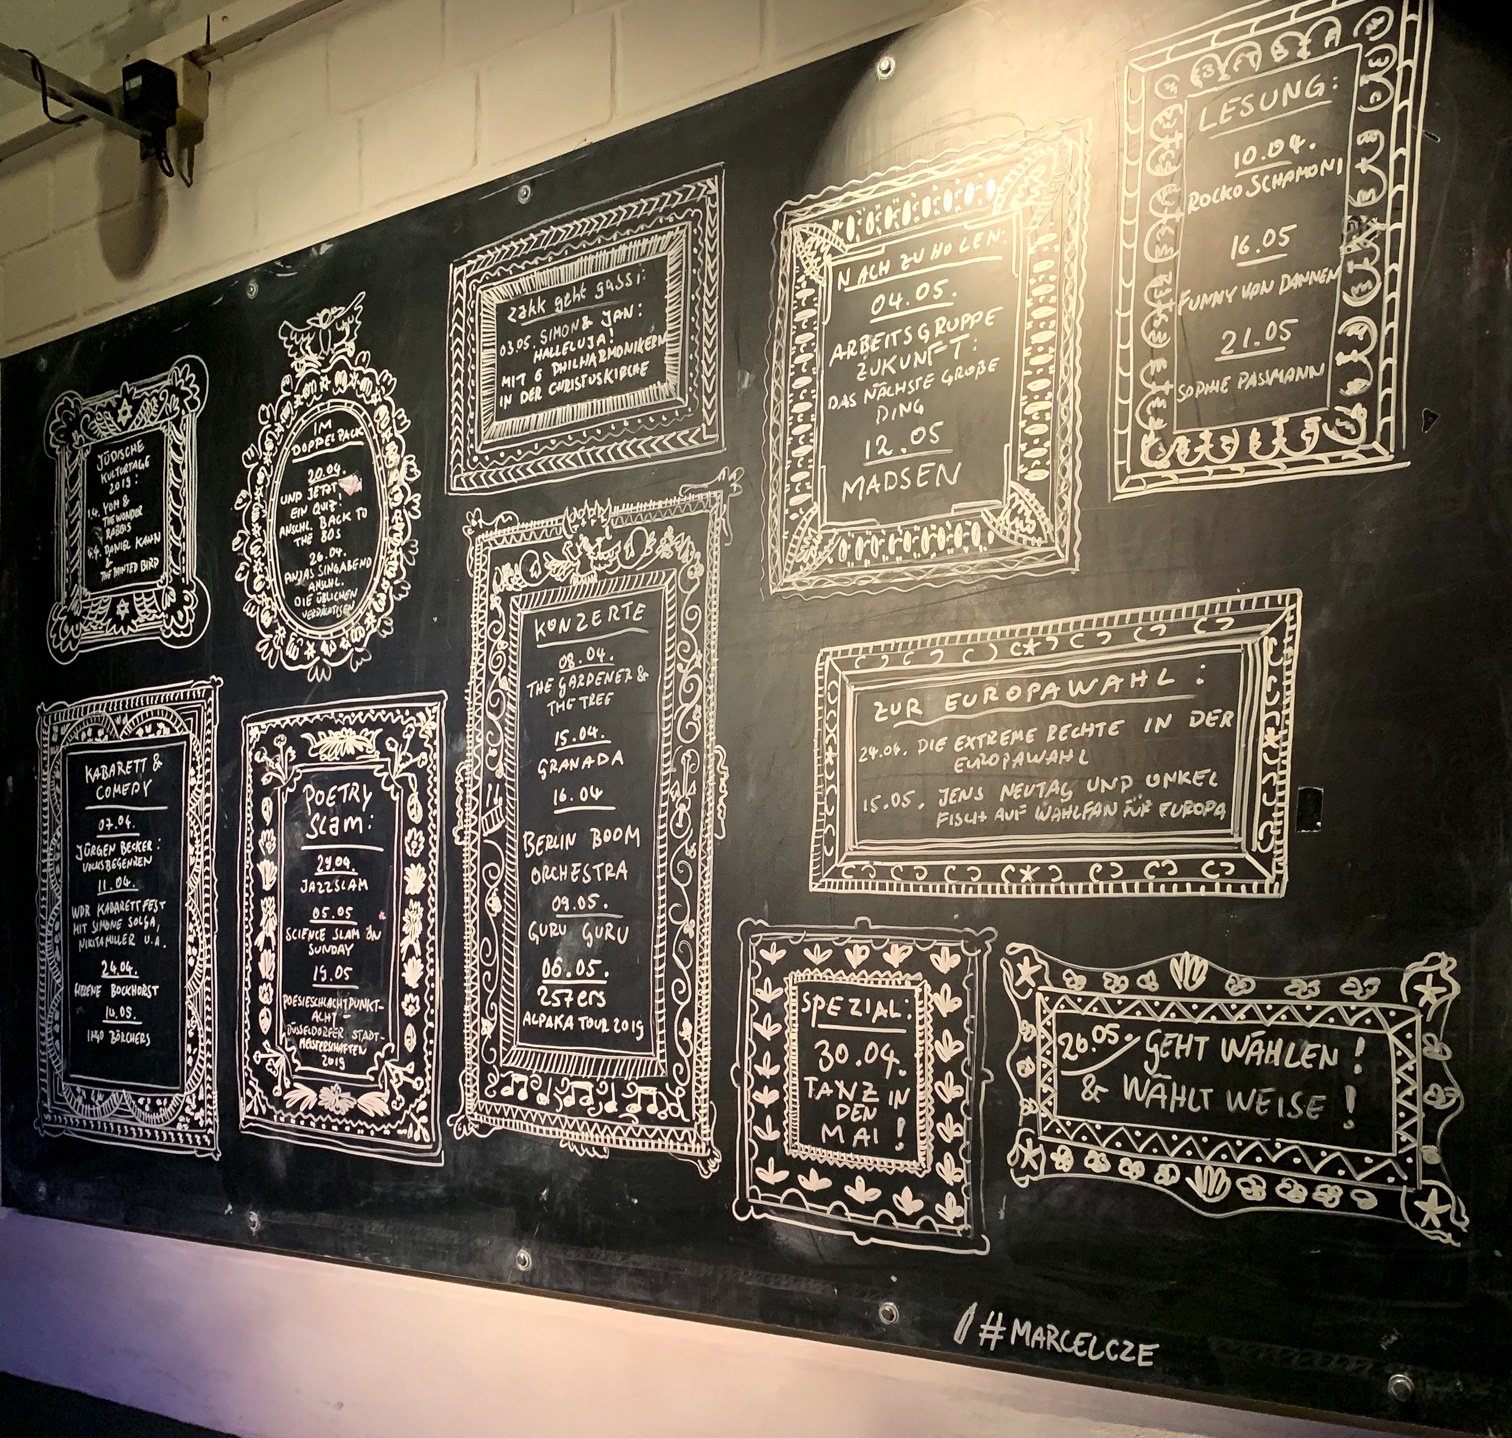 JÜDISCHE
KULTURTAGE
2019:
1.4. YOM &
THE WONDER
RABBIS
DANIEL KAHN
&
THE PAINTED BIRD
IM
DOPPELPACK
20.04.
UND JETZT
EIN QUIZ.
ANSCHL. BACK TO
THE 80S
26.04.
ANJAS SINGABEND
ANSCHL.
DIE ÜBLICHEN
VERDÄCHTIGEN
zakk geht gassi:
03.05. SIMON & JAN:
HALLELUJA!
MIT 6 PHILHARMONIKERN
IN DER CHRISTUSKIRCHE
NACHZUHOLEN:
04.05.
ARBEITSGRUPPE
ZUKUNFT:
DAS NÄCHSTE GROßE
DING
12.05
MADSEN
LESUNG:
10.04.
ROCKO SCHAMONI
16.05
FUNNY VAN DANNEN
21.05
SOPHIE PASSMANN
KABARETT &
COMEDY
07.04.
JÜRGEN BECKER:
VOLKSBEGEHREN
11.04.
WDR KABARETTFEST
MIT SIMONE SOLGA,
NIKITA MILLER U.A.
24.04.
HELENE BOCKHORST
10.05.
INGO BÖRCHERS
POETRY
Slam:
29.04.
JAZZSLAM
05.05
SCIENCE SLAM ON
SUNDAY
19.05
POESIESCHLACHTPUNKT-
ACHT -
DÜSSELDORFER STADT-
MEISTERSCHAFTEN
2019
KONZERTE
08.04.
THE GARDENER &
THE TREE
15.04.
GRANADA
16.04
BERLIN BOOM
ORCHESTRA
09.05.
GURU GURU
06.05.
257ers
ALPAKA TOUR 2019
ZUR EUROPAWAHL:
24.04. DIE EXTREME RECHTE IN DER
EUROPAWAHL
15.05. JENS NEUTAG UND ONKEL
FISCH AUF WAHLFANG FÜR EUROPA
SPEZIAL:
30.04.
TANZ IN
DEN
MAI!
26.05. GEHT WÄHLEN!
& WÄHLT WEISE!
#MARCELCZE